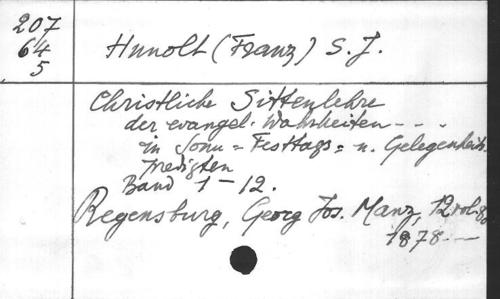 207
64
5
Hunolt (Franz) S. J.
Christliche Sittenlehre
der evangel. Wahrheiten - - -
in Sonn = Festtags = u. Gelegenheits
predigten
Band 1-12.
Regensburg, Georg Jos. Manz, 12 vol. 8o
1878 -